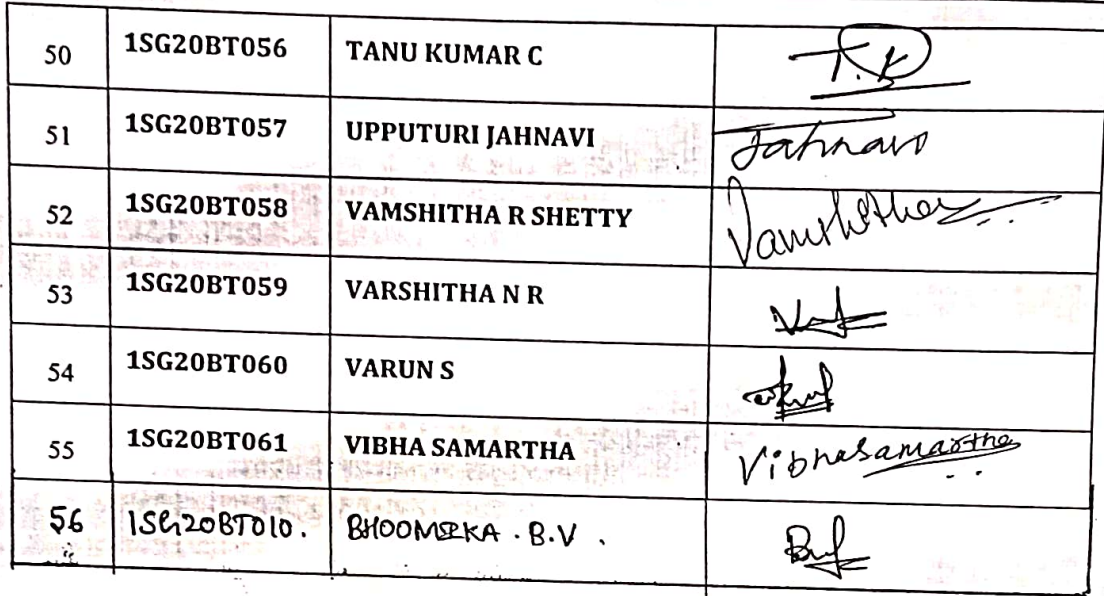 50 1SG20BT056 TANU KUMAR C T.K
51 1SG20BT057 UPPUTURI JAHNAVI Jahnavi
52 1SG20BT058 VAMSHITHA R SHETTY Vamshitha
53 1SG20BT059 VARSHITHA N R
54 1SG20BT060 VARUN S
55 1SG20BT061 VIBHA SAMARTHA Vibhasamartha
56 1SG20BT010. BHOOMIKA . B.V .